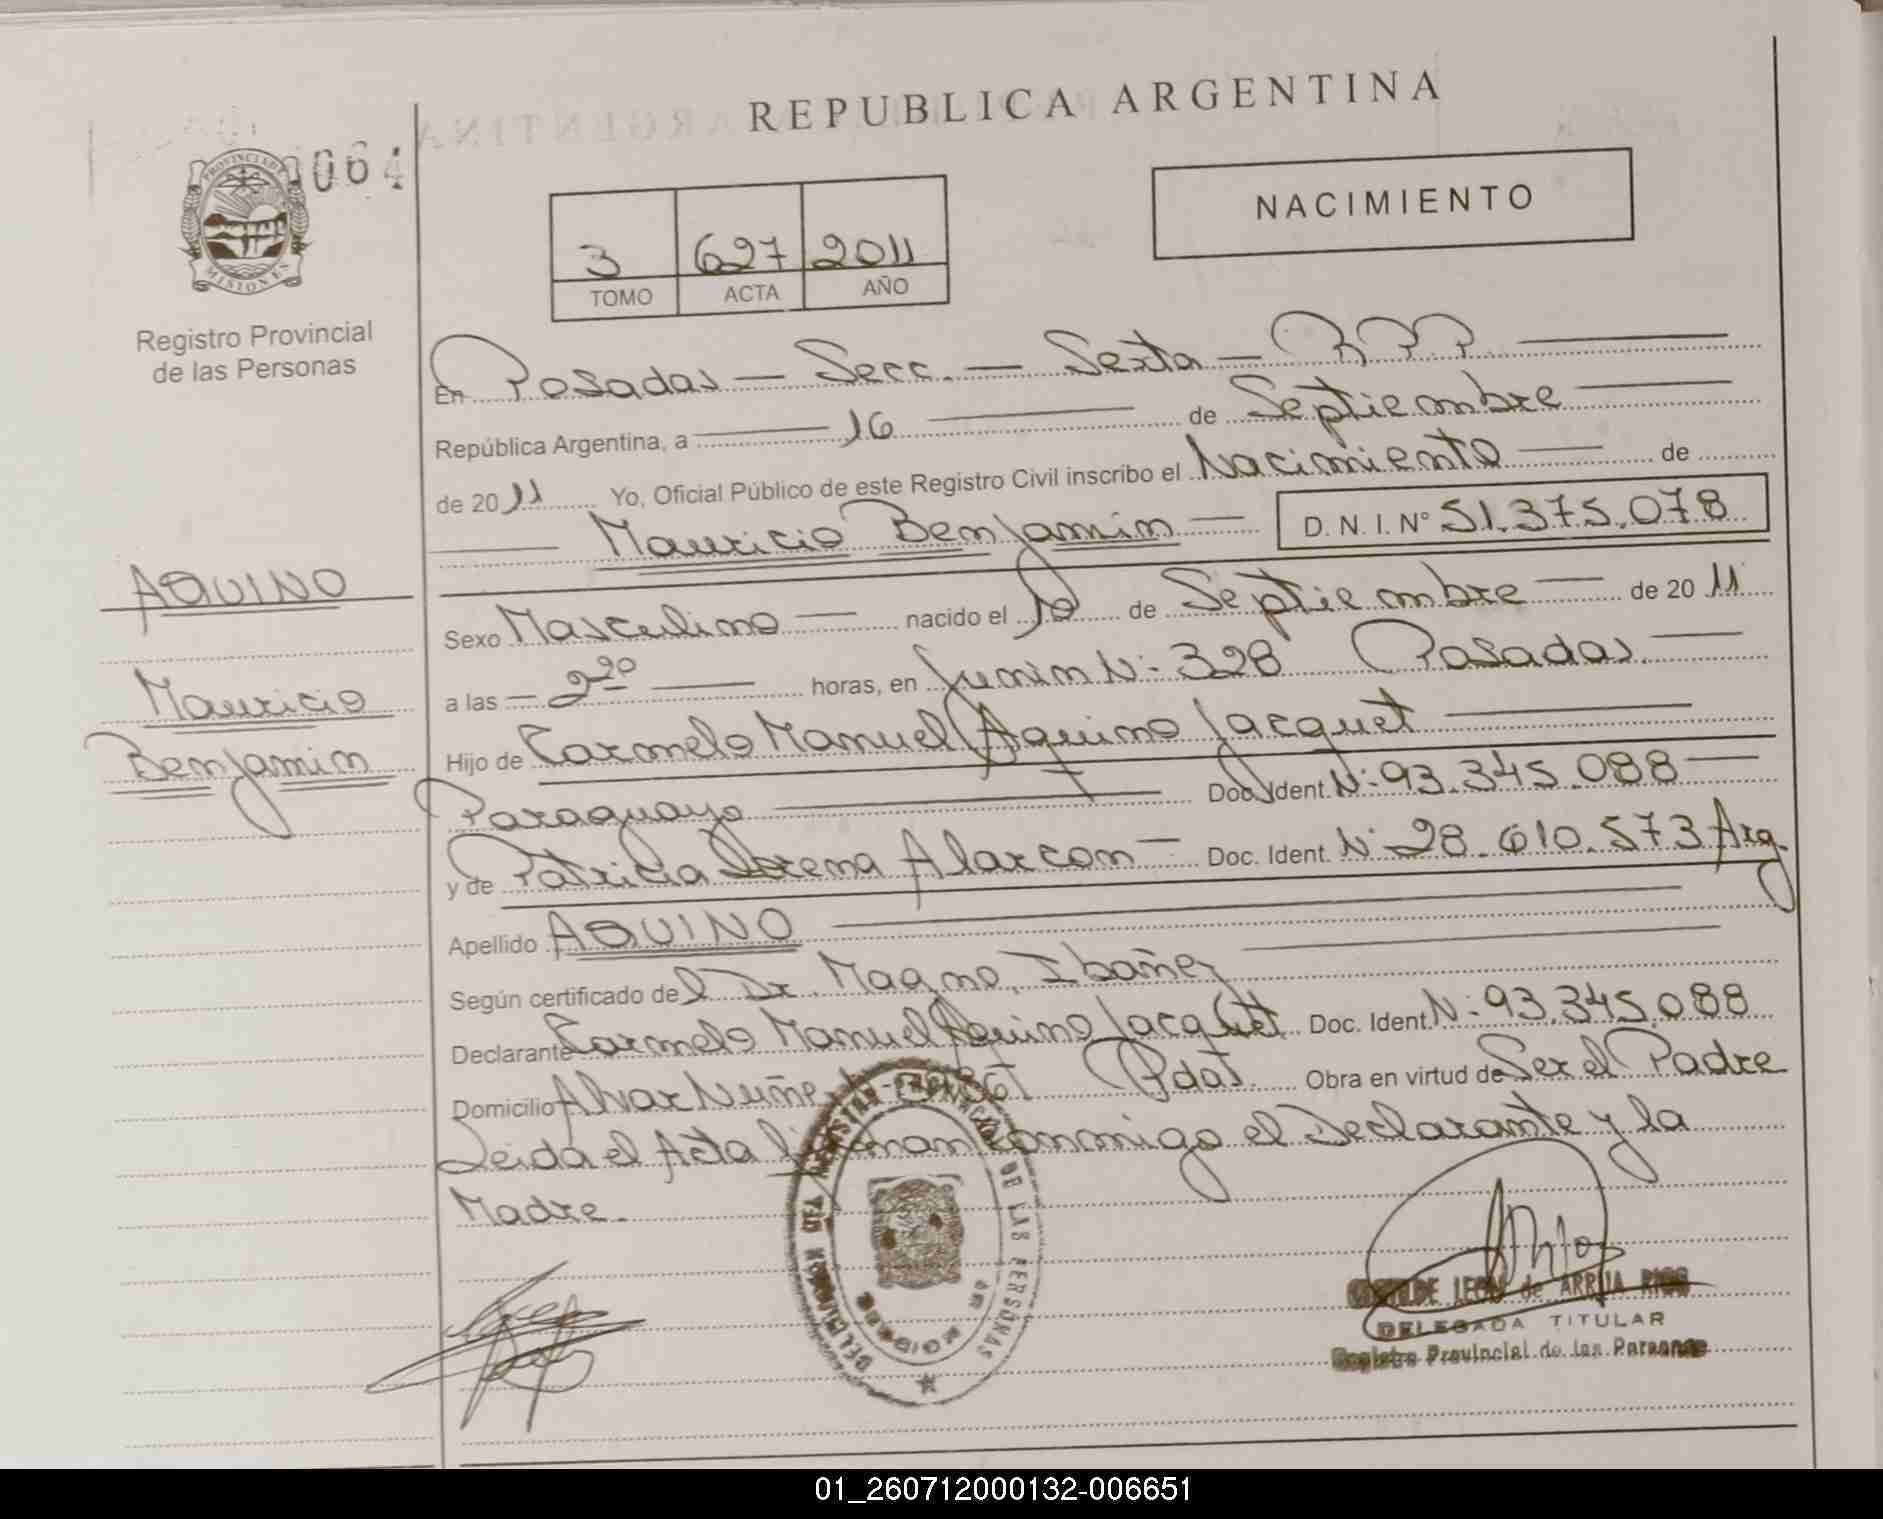 REPUBLICA ARGENTINA
064
PROVINCIA DE
MISIONES
Registro Provincial
de las Personas
3 627 2011
TOMO ACTA AÑO
NACIMIENTO
En Posadas — Secc. — Sexta — R.P.P.
República Argentina, a 16 de Septiembre
de 2011 Yo, Oficial Público de este Registro Civil inscribo el Nacimiento de
Mauricio Benjamin — D. N. I. N° 51.375.078
AQUINO
Mauricio
Benjamin
Sexo Masculino — nacido el 10 de Septiembre — de 2011
a las — 2 20 — horas, en Junin N: 328 Posadas.
Hijo de Carmelo Manuel Aquino Jacquet
Paraguayo — Doc. Ident. N: 93.345.088
y de Patricia Lorena Alarcon — Doc. Ident. N: 28.610.573 Arg.
Apellido AQUINO
Según certificado del Dr. Magno, Ibañez
Declarante Carmelo Manuel Aquino Jacquet Doc. Ident. N: 93.345.088
Domicilio Alvar Nuñez Pdas. Obra en virtud de Ser el Padre
Leida el Acta firman conmigo el Declarante y la
Madre.
DE LAS PERSONAS
LEON de ARRUA RIOS
DELEGADA TITULAR
Registro Provincial de las Personas
01_260712000132-006651